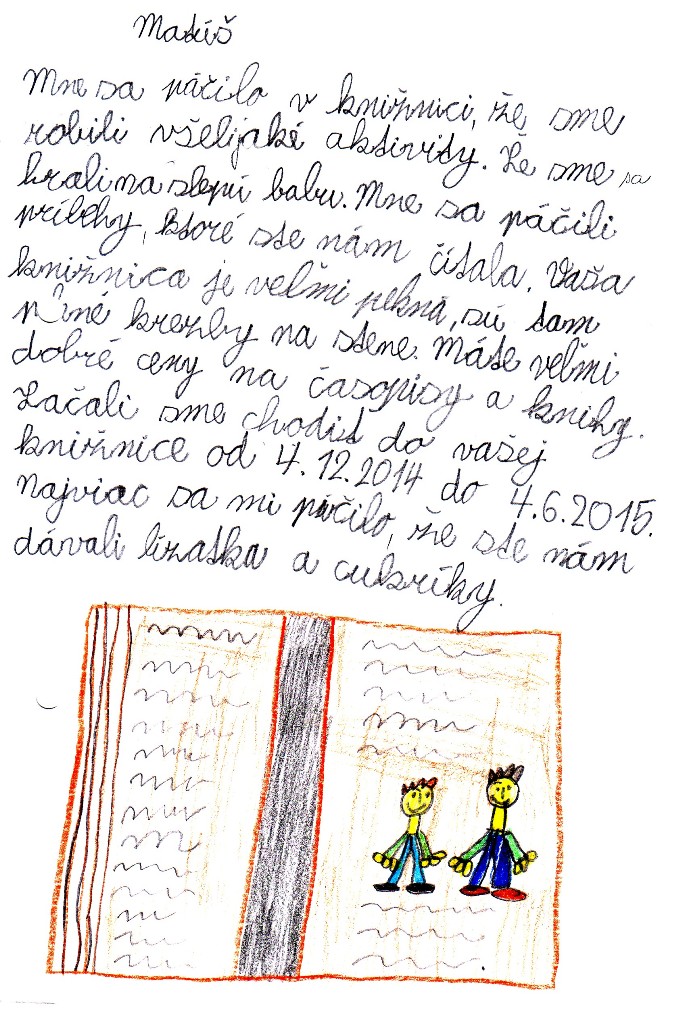 Matúš
Mne sa páčilo v knižnici, že sme
robili všelijaké aktivity. Že sme sa
hrali na slepú babu. Mne sa páčili
príbehy, ktoré ste nám čítala. Vaša
knižnica je veľmi pekná, sú tam
rôzné krezby na stene. Máte veľmi
dobré ceny na časopisy a knihy.
Začali sme chodiť do vašej
knižnice od 4.12.2014 do 4.6.2015.
Najviac sa mi páčilo, že ste nám
dávali lízatka a cukríky.